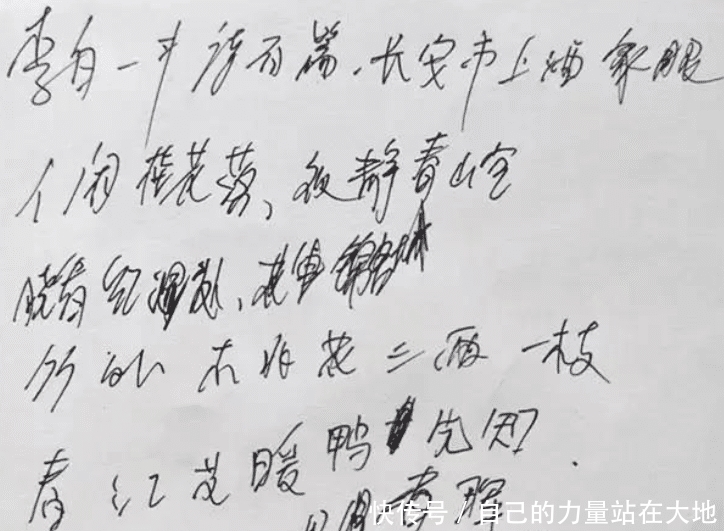 李白一斗诗百篇,长安市上酒家眠
人闲桂花落,夜静春山空
晓看红湿处,花重锦官城
竹外桃花三两一枝
春江 暖鸭 先知
快传号/自己的力量站在大地